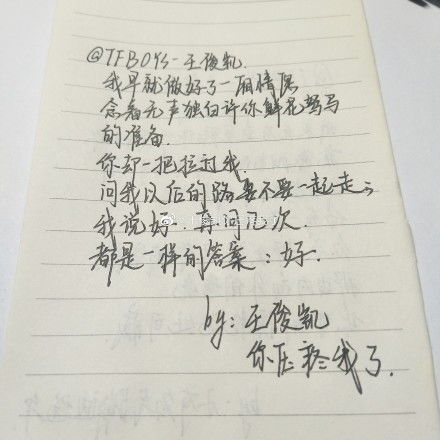 @TFBOYS-王俊凯.
我早就做好了一厢情愿
念着无声独白许你鲜花驽马
的准备.
你却一把拉过我.
问我以后的路要不要一起走
我说好.再问几次.
都是一样的答案:好.
by:王俊凯
你压疼我了.